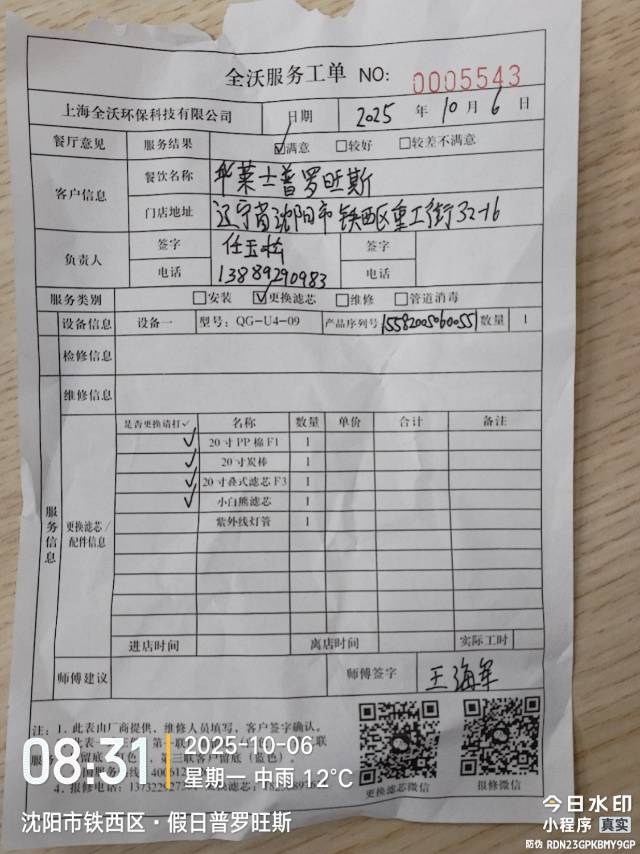 全沃服务工单 NO: 0005543
上海全沃环保科技有限公司 日期 2025 年 10 月 6 日
餐厅意见 服务结果 ☑满意 □较好 □较差不满意
客户信息 餐饮名称 华莱士普罗旺斯
门店地址 辽宁省沈阳市铁西区重工街32-16
负责人 签字 任玉松 签字
电话 13889290983 电话
服务类别 □安装 ☑更换滤芯 □维修 □管道消毒
设备信息 设备一 型号: QG-U4-09 产品序列号 15582005060055 数量 1
检修信息
维修信息
服务信息 更换滤芯/配件信息
是否更换请打✓ 名称 数量 单价 合计 备注
✓ 20寸PP棉F1 1
✓ 20寸炭棒 1
✓ 20寸叠式滤芯F3 1
✓ 小白熊滤芯 1
紫外线灯管 1
进店时间 离店时间 实际工时
师傅建议 师傅签字 王海军
注: 1. 此表由厂商提供, 维修人员填写, 客户签字确认。
更换滤芯微信 报修微信
08:31
2025-10-06
星期一 中雨 12℃
沈阳市铁西区·假日普罗旺斯
今日水印
小程序 真实
防伪 RDN23GPKBMY9GP